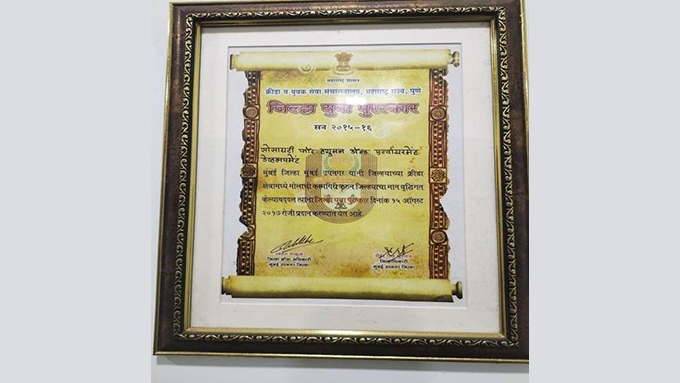 महाराष्ट्र शासन
क्रीडा व युवक सेवा संचालनालय, महाराष्ट्र राज्य, पुणे
जिल्हा युवा पुरस्कार
सन २०१५-१६
सोसायटी फॉर ह्युमन अँन्ड एन्व्हायरमेंट
डेव्हलपमेंट
मुंबई जिल्हा मुंबई उपनगर यांनी जिल्हयाच्या क्रीडा
क्षेत्रामध्ये मोलाची कामगिरी करून जिल्हयाचा मान वृद्धिंगत
केल्याबद्दल त्यांना जिल्हा युवा पुरस्कार दिनांक १५ ऑगस्ट
२०१७ रोजी प्रदान करण्यात येत आहे.
जिल्हा क्रीडा अधिकारी
मुंबई उपनगर जिल्हा
जिल्हाधिकारी
मुंबई उपनगर जिल्हा